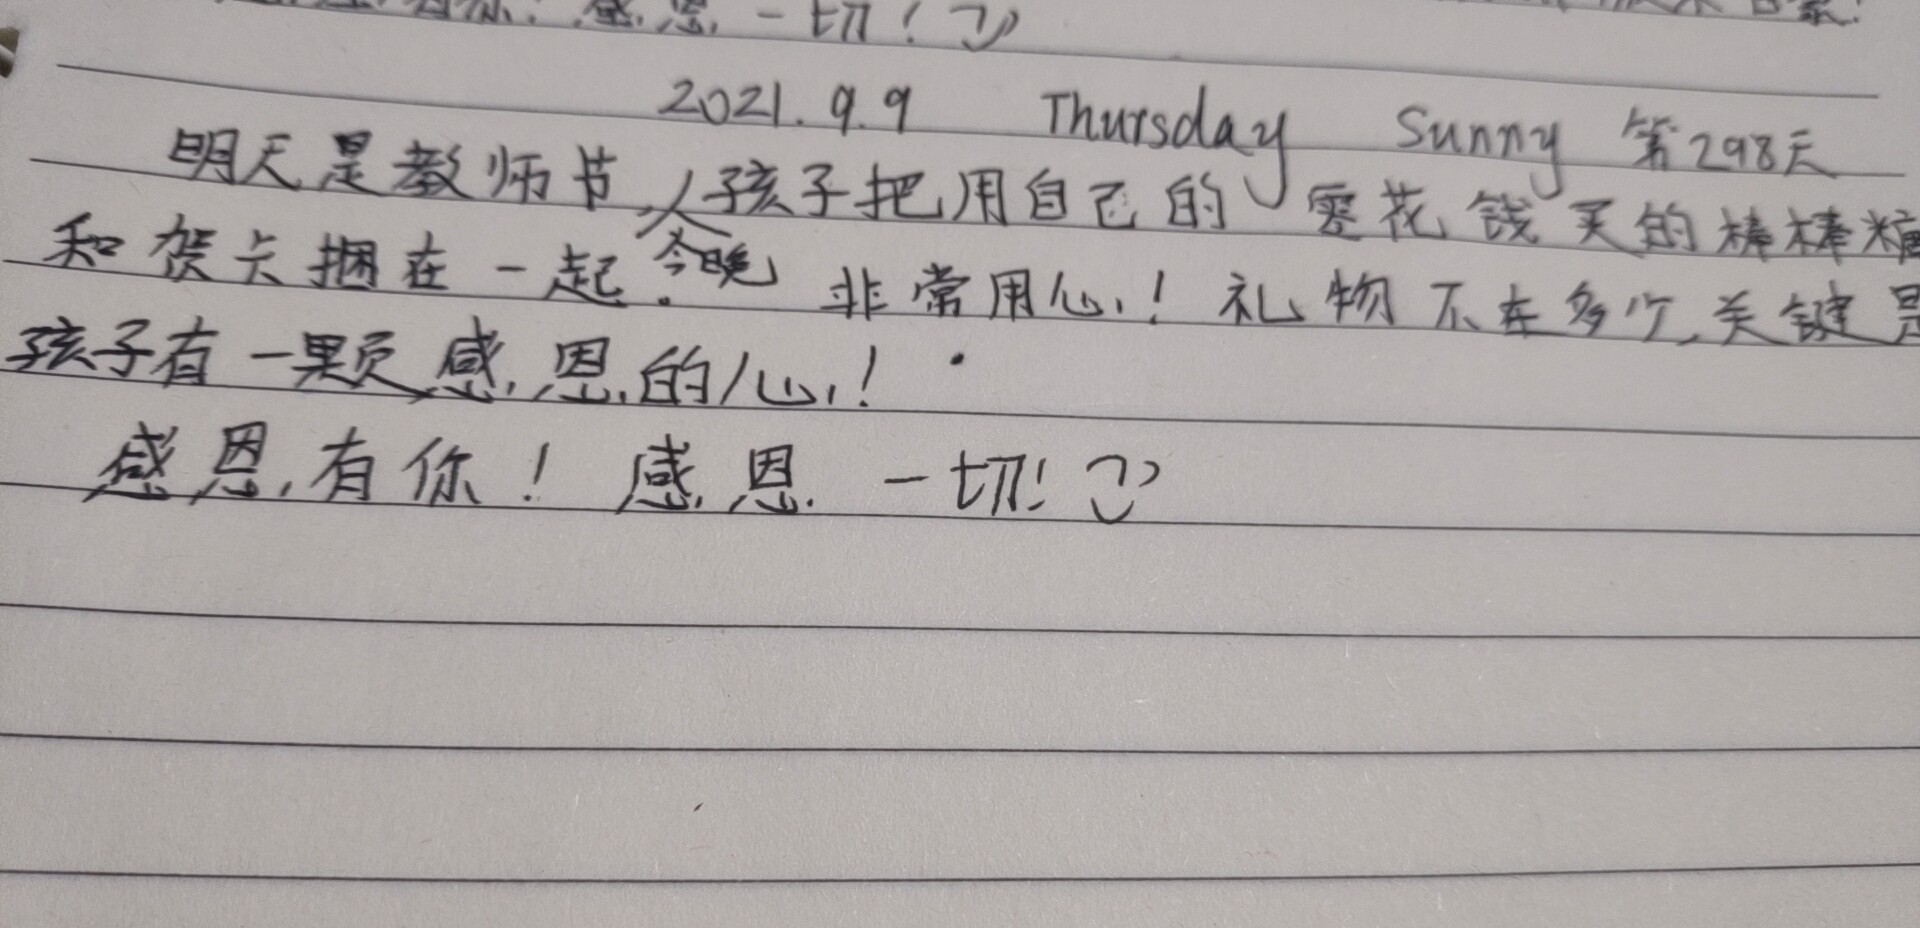 感恩一切!
2021.9.9 Thursday Sunny 第298天
明天是教师节,今晚孩子把用自己的零花钱买的棒棒糖
和贺卡捆在一起。非常用心!礼物不在多少,关键是
孩子有一颗感恩的心!
感恩有你!感恩一切!